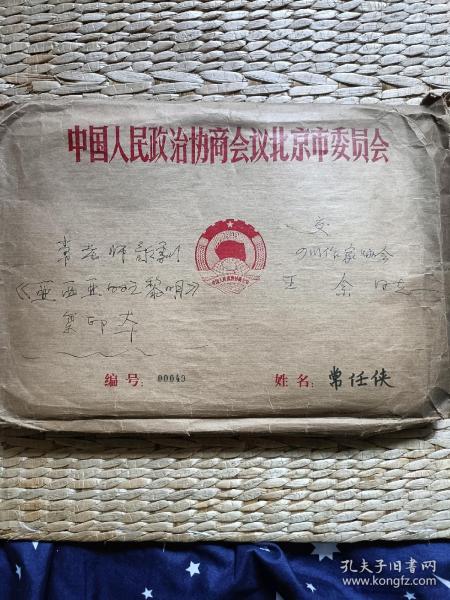 中国人民政治协商会议北京市委员会
常老师歌剧
《亚西亚的黎明》
复印本
交
四川作家协会
王余同志
中国人民政治协商会议
编号: 00043
姓名: 常任侠
孔夫子旧书网
www.kongfz.com